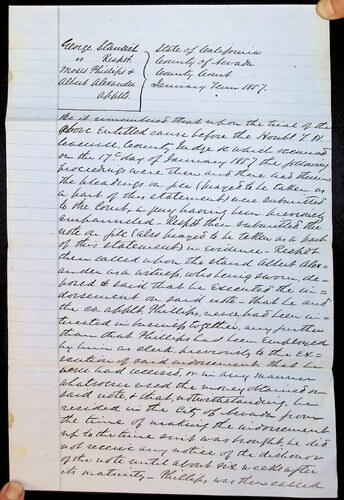 George Stewart
vs Respt.
Moses Phillips &
Albert Alexander
Applts.
State of California
County of Nevada
County Court
January Term 1857.
Be it remembered that upon the trial of the
above Entitled cause before the Honbl T. H.
Caswell County Judge &c which occurred
on the 17th day of January 1857 the following
proceedings were then and there had therein
the pleadings on file (prayed to be taken as
a part of this statement) were submitted
to the Court, a jury having been previously
empannelled. Respt then submitted the
note on file (also prayed to be taken as a part
of this statement) in Evidence. Respt
then called upon the stand Albert Alex-
ander as a witness, who being sworn, de-
posed & said that he Executed the in-
dorsement on said note - that he and
the co. applt Phillips, never had been in-
terested in business together, any further
than that Phillips had been Employed
by him as clerk, previously to the Ex-
ecution of said indorsement that he
never had received, or in any manner
whatsoever used the money obtained on
said note, & that, notwithstanding, he
resided in the City of Nevada from
the time of making the indorsement
up to the time suit was brought, he did
not receive any notice of the dishonor
of the note until about six weeks after
its maturity - Phillips, was then called